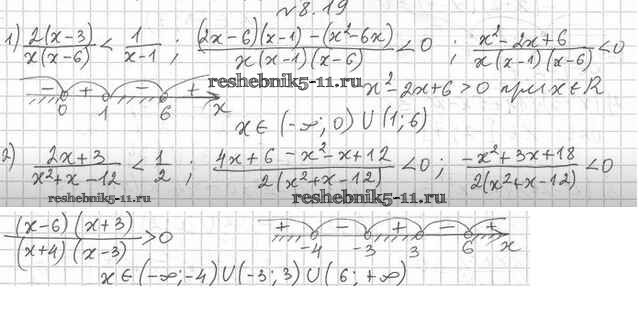 №8.19
1) \frac{2(x-3)}{x(x-6)} < \frac{1}{x-1} ; \frac{(2x-6)(x-1)-(x²-6x)}{x(x-1)(x-6)} < 0 ; \frac{x²-2x+6}{x(x-1)(x-6)} < 0
− + − +
reshebnik5-11.ru
x²-2x+6>0 при x∈R
0 1 6 x
x∈(-∞;0)∪(1;6)
2) \frac{2x+3}{x²+x-12} < \frac{1}{2} ; \frac{4x+6-x²-x+12}{2(x²+x-12)} < 0 ; \frac{-x²+3x+18}{2(x²+x-12)} < 0
reshebnik5-11.ru reshebnik5-11.ru
\frac{(x-6)(x+3)}{(x+4)(x-3)} > 0
+ − + − +
-4 -3 3 6 x
x∈(-∞;-4)∪(-3;3)∪(6;+∞)